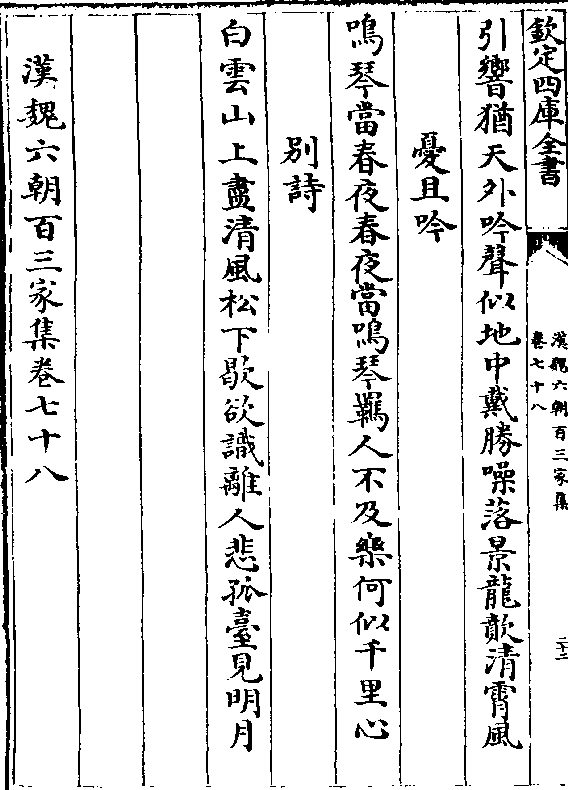 欽定四庫全書
漢魏六朝百三家集
卷七十八
二十二
引響猶天外吟聲似地中戴勝噪落景龍歕清霄風
憂且吟
鳴琴當春夜春夜當鳴琴羈人不及樂何似千里心
別詩
白雲山上盡清風松下歇欲識離人悲孤臺見明月
漢魏六朝百三家集卷七十八